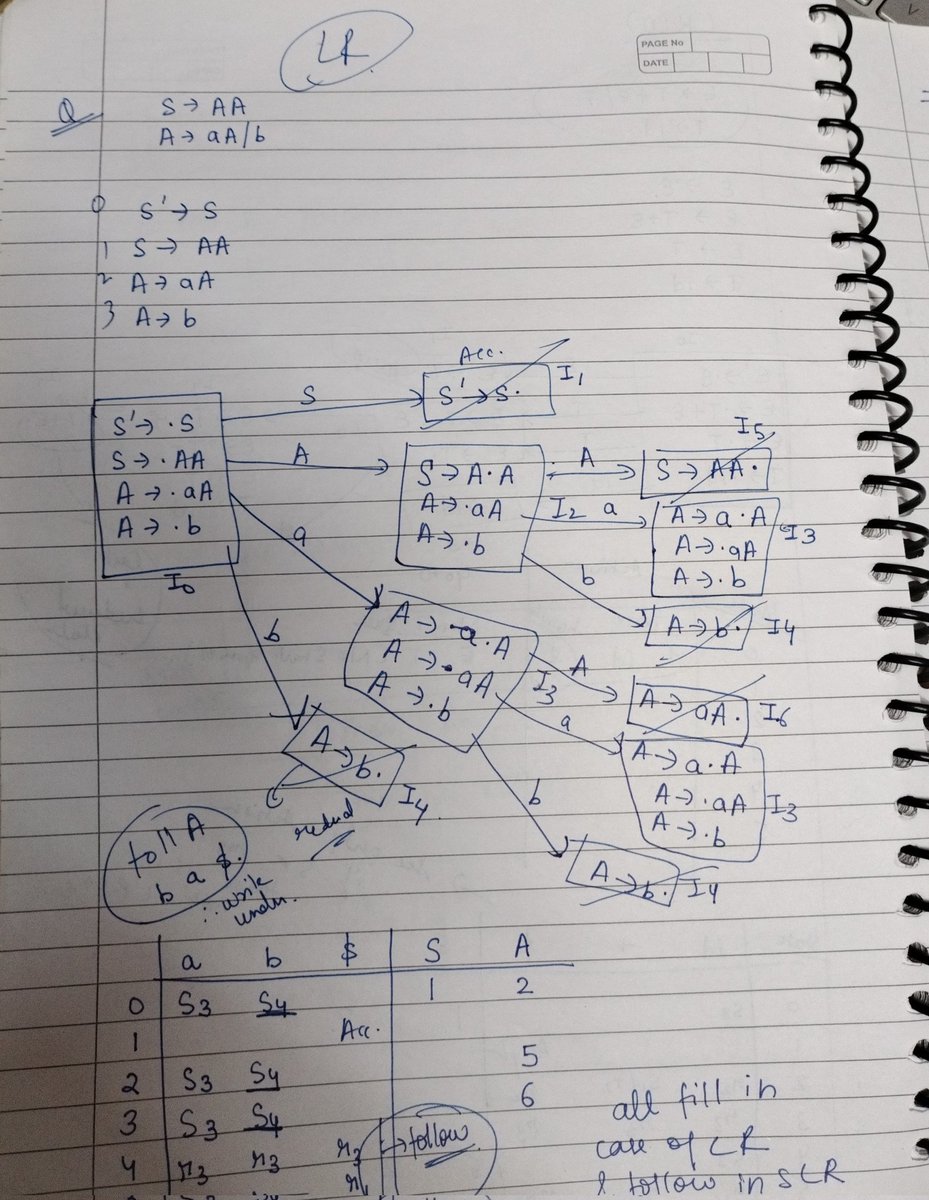 LR
PAGE No
DATE
Q S → AA
A → aA/b
0 S' → S
1 S → AA
2 A → aA
3 A → b
Acc.
S' → S· I1
S' → ·S
S → ·AA
A → ·aA
A → ·b
I0
S
A
a
b
S → A·A
A → ·aA
A → ·b
I2
A
a
b
I5
S → AA·
A → a·A
A → ·aA
A → ·b
I3
A → b· I4
A → ·a·A
A → ·aA
A → ·b
I3
A
a
b
A → aA· I6
A → a·A
A → ·aA
A → ·b
I3
A → b· I4
A → b·
I4
reduced
foll A
b a $.
∴ write
under.
a b $ S A
0 S3 S4 1 2
1 Acc.
2 S3 S4 5
3 S3 S4 6
4 r3 r3 r3 → follow
r1
all fill in
case of LR
& follow in SLR